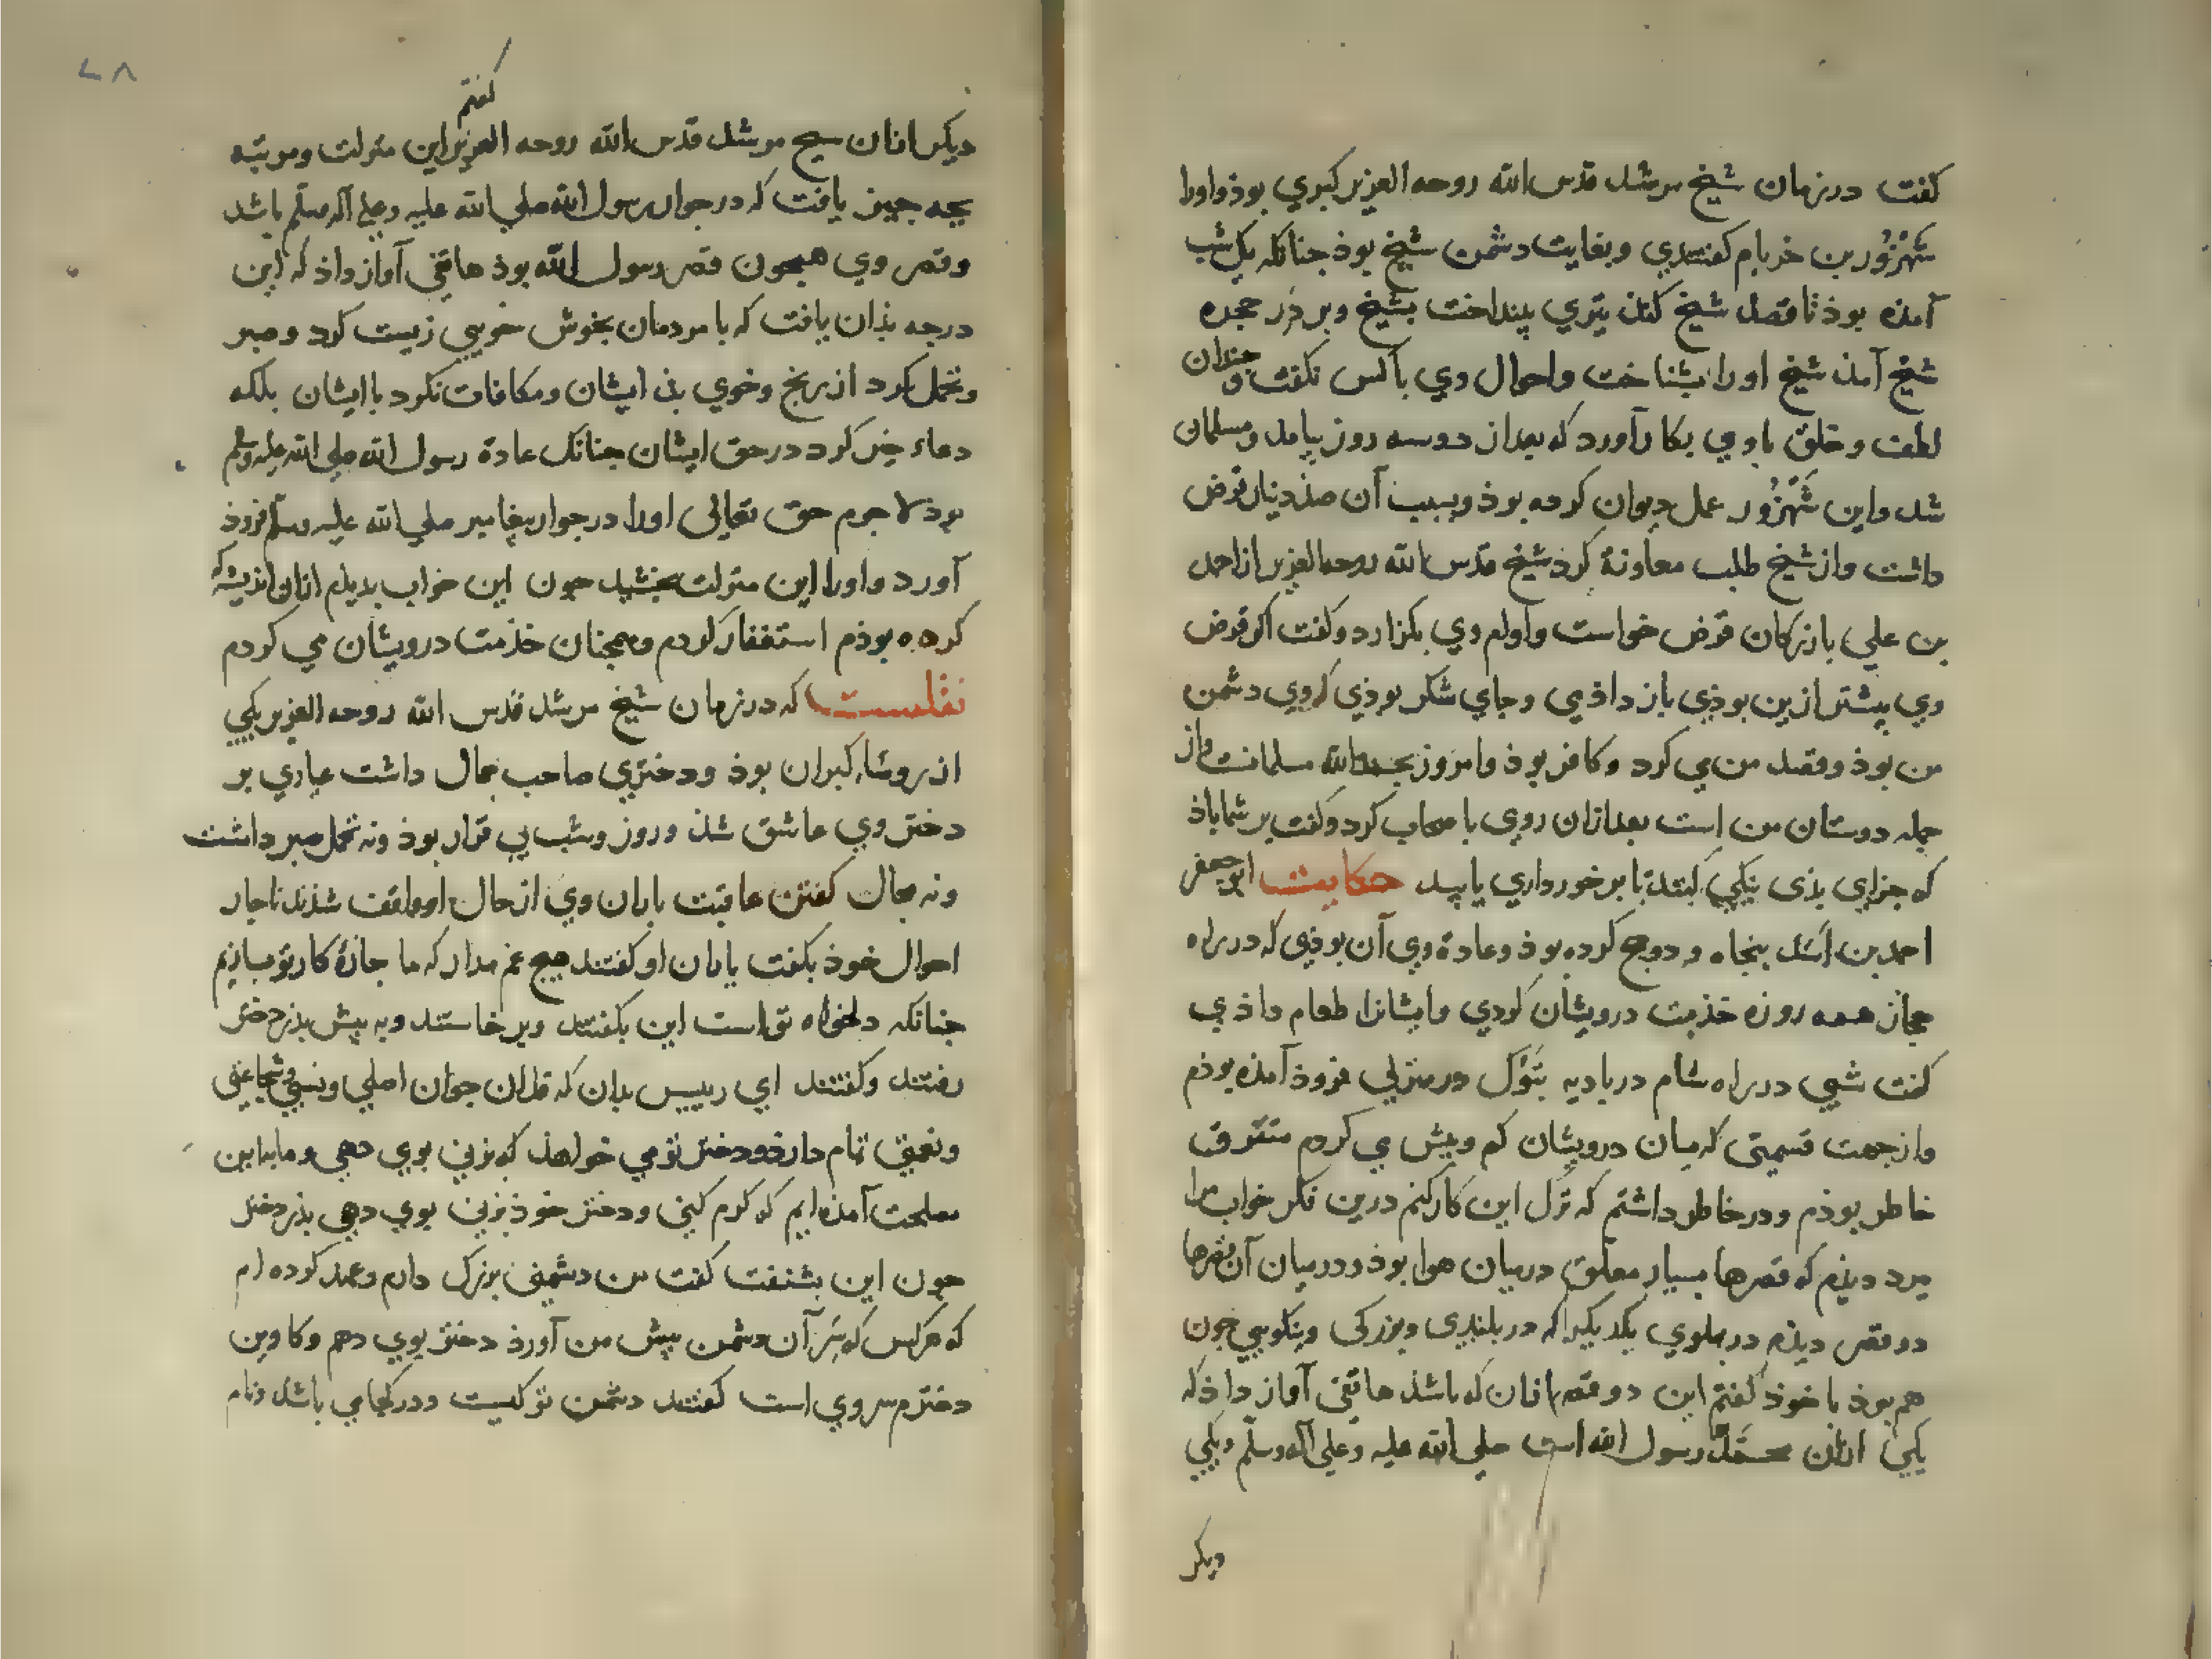 کفت درزمان شیخ مرشد قدس الله روحه العزیز کبری بوذ واورا
شَهْزُور بن خربام کفتندی وبغایت دشمن شیخ بوذ جنانکه یک شب
آمذه بوذ تا قصد شیخ کند تیری بینداخت بشیخ وبر در حجره
شیخ آمذ شیخ اورا بشناخت واحوال وی باکس نکفت و جندان
لطف وخلق باوی بکار آورد که بعد از دوسه روز بیامد ومسلمان
شد واین شَهْزُور عمل دیوان کرده بوذ وبسبب آن صذ دینار قرض
داشت واز شیخ طلب معاونة کرد شیخ قدس الله روحه العزیز از احمد
بن علی بازرکان قرض خواست واوام وی بکزارد وکفت اکر قرض
وی بیشتر ازین بوذی باز داذمی وجای شکر بوذی که وی دشمن
من بوذ وقصد من می کرد وکافر بوذ وامروز بحمدالله مسلمانست واز
جمله دوستان من است بعد ازان روی باصحاب کرد وکفت بر شما باذ
که جزای بذی نیکی کنید تا برخورداری یابید حکایت ابوجعفر
احمد بن اسد بنجاه ودو حج کرده بوذ وعادة وی آن بوذی که در راه
حجاز همه روزه خذمت درویشان کردی وایشانرا طعام داذی
کفت شبی در راه شام در بادیه تبوک در منزلی فروذ آمذه بوذم
واز جهت قسمتی که میان درویشان کم وبیش می کردم متفرق
خاطر بوذم ودرخاطر داشتم که ترک این کار کنم درین فکر خواب مرا
ببرد دیذم که قصرها بسیار معلق درمیان هوا بوذ ودرمیان آن قصرها
دو قصر دیذم در بهلوی یکدیکر که در بلندی وبزرکی ونیکویی جون
هم بوذ باخوذ کفتم این دو قصر ازان که باشذ هاتفی آواز داذ که
یکی ازان محمد رسول الله است صلی الله علیه وعلی آله وسلم ویکی
دیکر
کفتم
دیکر ازان شیخ مرشد قدس الله روحه العزیز این منزلت ومرتبه
بجه جیز یافت که در جوار رسول الله صلی الله علیه وعلی آله وسلم باشد
وقصر وی همجون قصر رسول الله بوذ هاتفی آواز داذ که این
درجه بذان یافت که با مردمان بخوش خویی زیست کرد وصبر
وتحمل کرد از رنج وخوی بذ ایشان ومکافات نکرد با ایشان بلکه
دعاء خیر کرد در حق ایشان جنانک عادة رسول الله صلی الله علیه وسلم
بوذ لاجرم حق تعالی اورا در جوار بیغامبر صلی الله علیه وسلم فروذ
آورد واورا این منزلت بخشید جون این خواب بدیدم ازان اندیشه که
کرده بوذم استغفار کردم وهمجنان خذمت درویشان می کردم
نقلست که درزمان شیخ مرشد قدس الله روحه العزیز یکی
از روساء کبران بوذ ودختری صاحب جمال داشت عیاری بر
دختر وی عاشق شذ وروز وشب بی قرار بوذ ونه تحمل صبر داشت
ونه مجال کفتن عاقبت یاران وی از حال او واقف شذند ناجار
احوال خوذ بکفت یاران او کفتند هیج غم مدار که ما جارة کار تو بسازیم
جنانکه دلخواه تو است این بکفتند وبرخاستند وبه پیش بذر دختر
رفتند وکفتند ای رییس بدان که فلان جوان اصلی ونسبی وشجاعتی
ونعمتی تمام دارد ودختر تو می خواهذ که بزنی بوی دهی وما بدین
مصلحت آمذه ایم که کرم کنی ودختر خوذ بزنی بوی دهی بذر دختر
جون این بشنفت کفت من دشمنی بزرک دارم وعهد کرده ام
که هرکس که سَر آن دشمن پیش من آورد دختر بوی دهم وکاوین
دخترم سر وی است کفتند دشمن تو کیست ودر کجا می باشد ونام